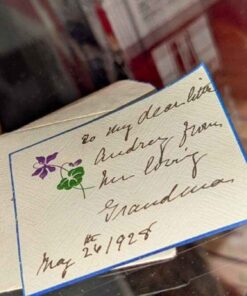 To my dear little
Audrey from
her loving
Grandma
May 24th/1928